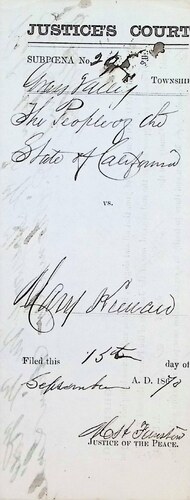 JUSTICE'S COURT
SUBPŒNA No.
Grass Valley TOWNSHIP
The People of the
State of California
vs.
Mary
Filed this 15th day of
September A. D. 1870
JUSTICE OF THE PEACE.